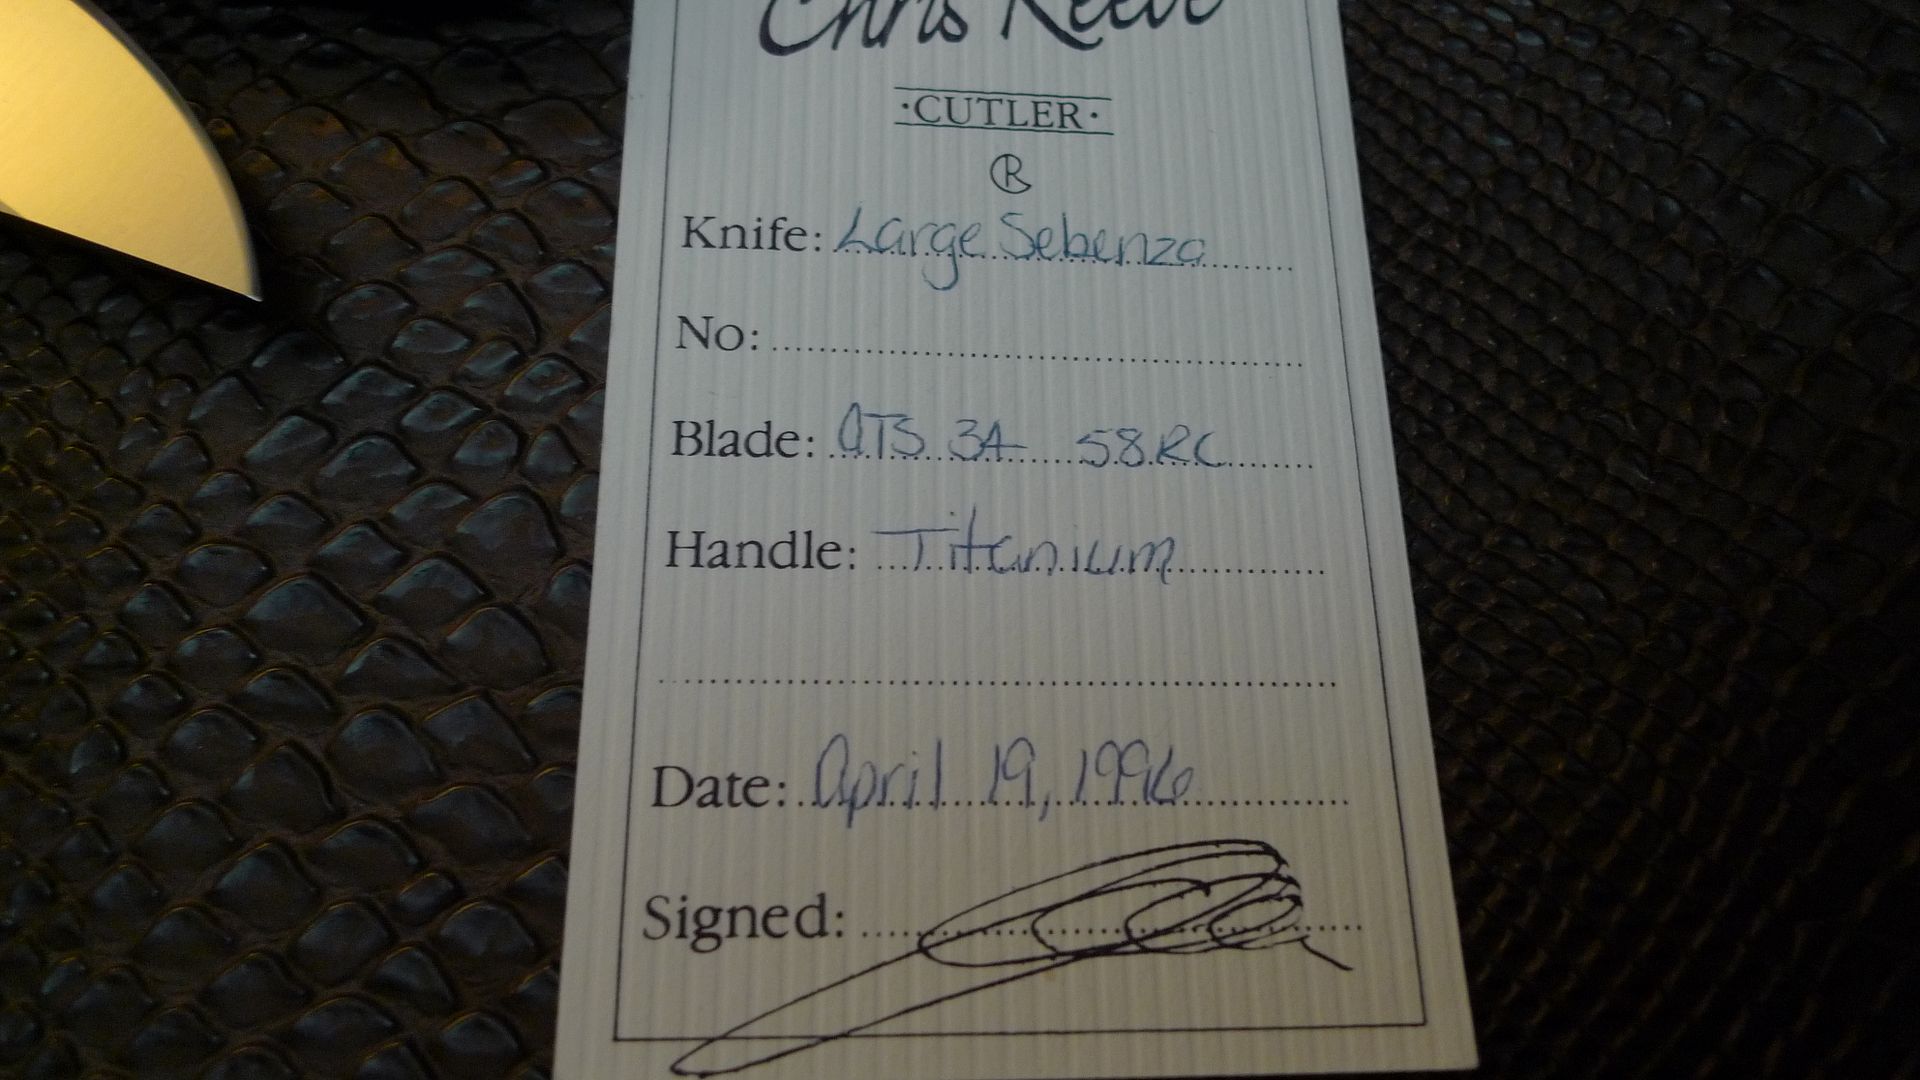 Chris Reeve
·CUTLER·
Knife: Large Sebenza
No:
Blade: ATS 34 58 RC
Handle: Titanium
Date: April 19, 1996
Signed: